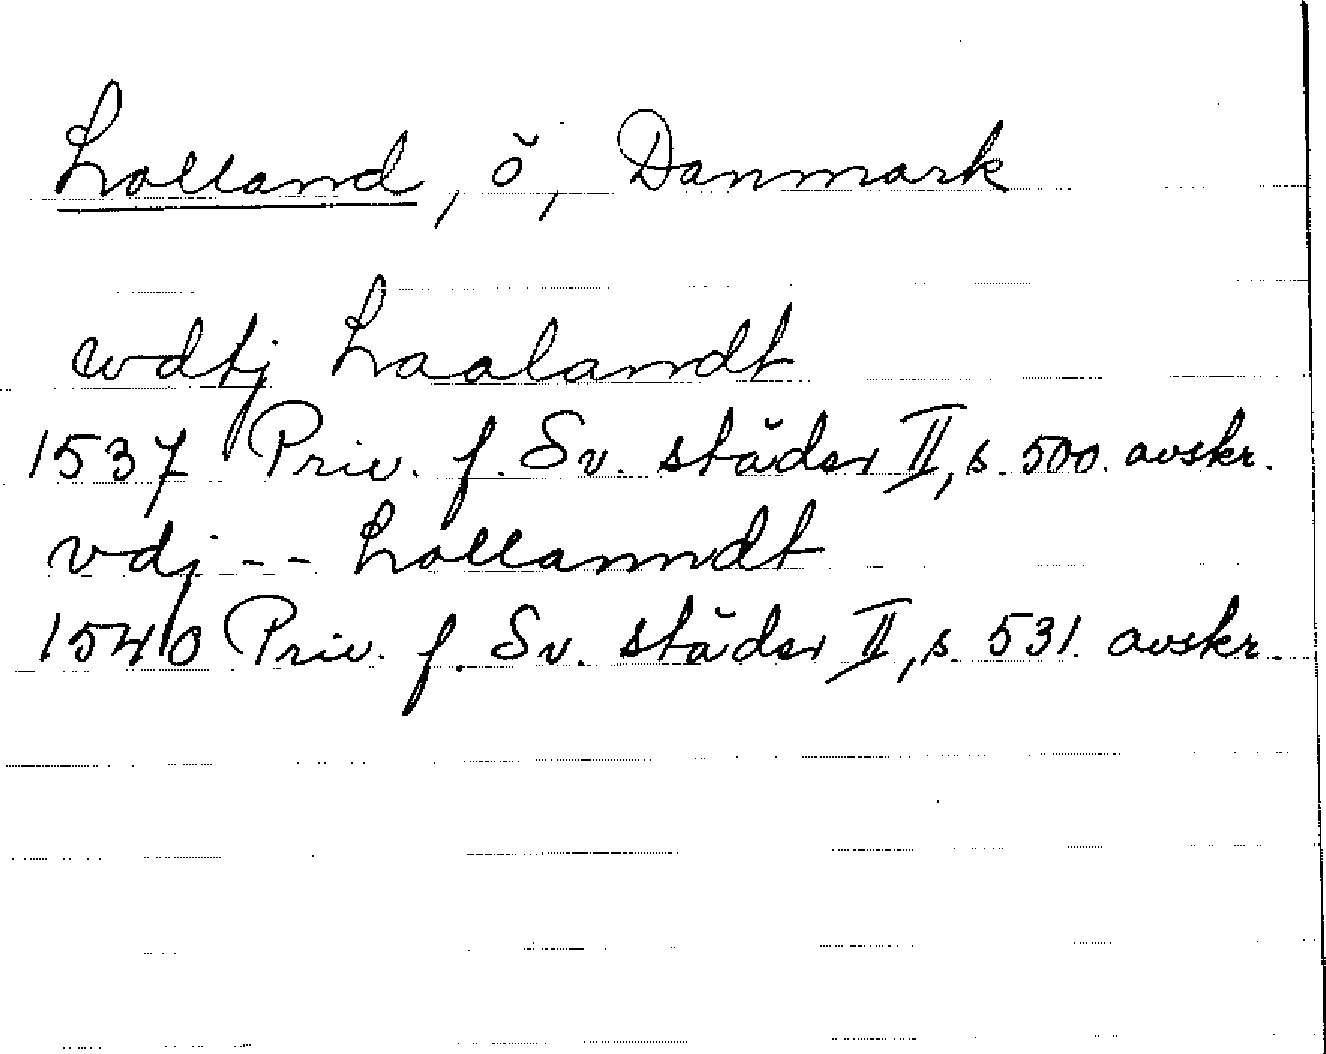 Lolland, ö, Danmark
wdtj Laalandt
1537 Priv. f. Sv. städer II, s. 500. avskr.
vdj -- Lollanndt
1540 Priv. f. Sv. städer II, s. 531. avskr.